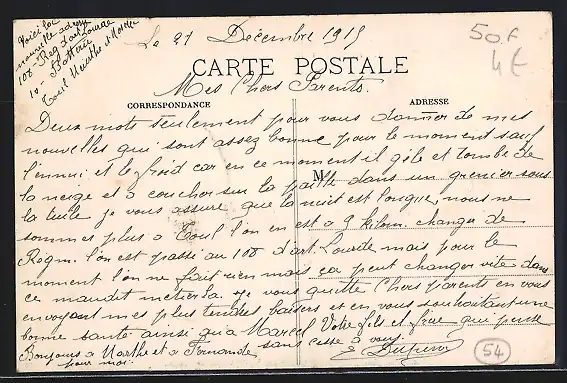 Voici la
nouvelle adresse
108 Reg d'art Lourde
10 Batterie
Toul Meurthe et Moselle
Le 21 Décembre 1915
50F
4€
CARTE POSTALE
Mes Chers Parents.
CORRESPONDANCE
ADRESSE
Deux mots seulement pour vous donner de mes
nouvelles qui sont assez bonne pour le moment sauf
l'ennui et le froid car en ce moment il gèle et tombe de
M
la neige et a coucher sur la paille dans un grenier sous
la tuile je vous assure que la nuit est longue, nous ne
sommes plus a Toul l'on en est a 9 kilom. changer de
Regm. l'on est passé au 108 d'art. Lourde mais pour le
moment l'on ne fait rien mais ça peut changer vite dans
ce maudit metier la. Je vous quitte Chers Parents en vous
envoyant mes plus tendres baisers et en vous souhaitant une
bonne santé ainsi qu'a Marcel Votre fils et frère qui pense
sans cesse a vous.
Bonjours a Marthe et a Fernande
pour moi.
54